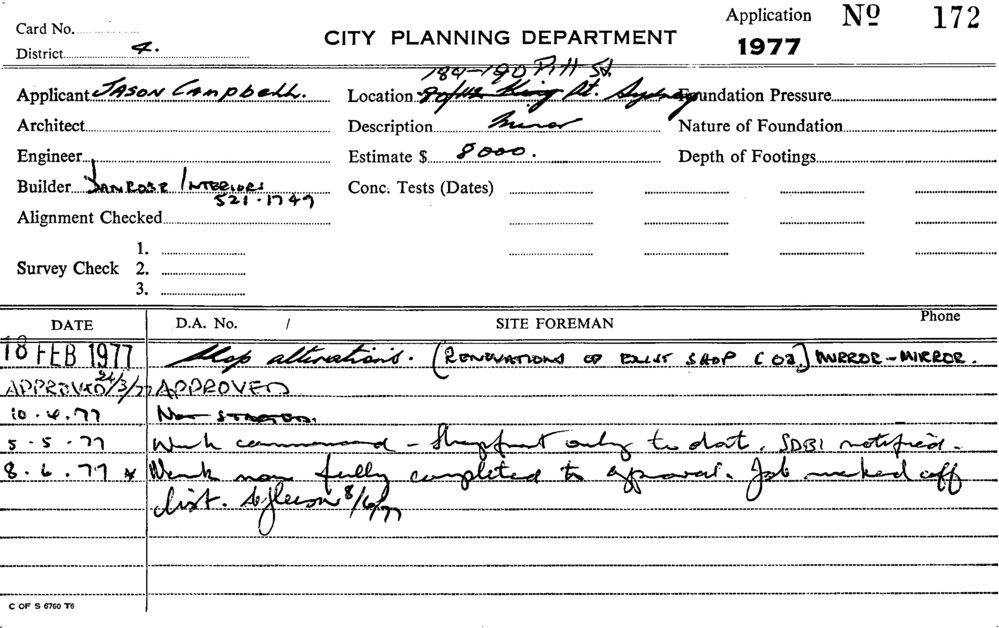 Card No.
Application Nº 172
District 4.
CITY PLANNING DEPARTMENT
1977
184-190 Pitt St.
Applicant JASON Campbell.
Location King St. Sydney
Foundation Pressure
Architect
Description Minor
Nature of Foundation
Engineer
Estimate $ 8000.
Depth of Footings
Builder INTERIORS
521.1749
Conc. Tests (Dates)
Alignment Checked
1.
Survey Check 2.
3.
DATE
D.A. No. /
SITE FOREMAN
Phone
18 FEB 1977
Shop alterations. (RENOVATIONS OF EXIST SHOP MIRROR-MIRROR.
APPROVED 24/3/77 APPROVED
10.4.77 NOT STARTED.
5.5.77 Work commenced - Shopfront only to date. SDBI notified.
8.6.77 * Work now fully completed to approval. Job marked off
list. 8/6/77
C OF S 6760 T6